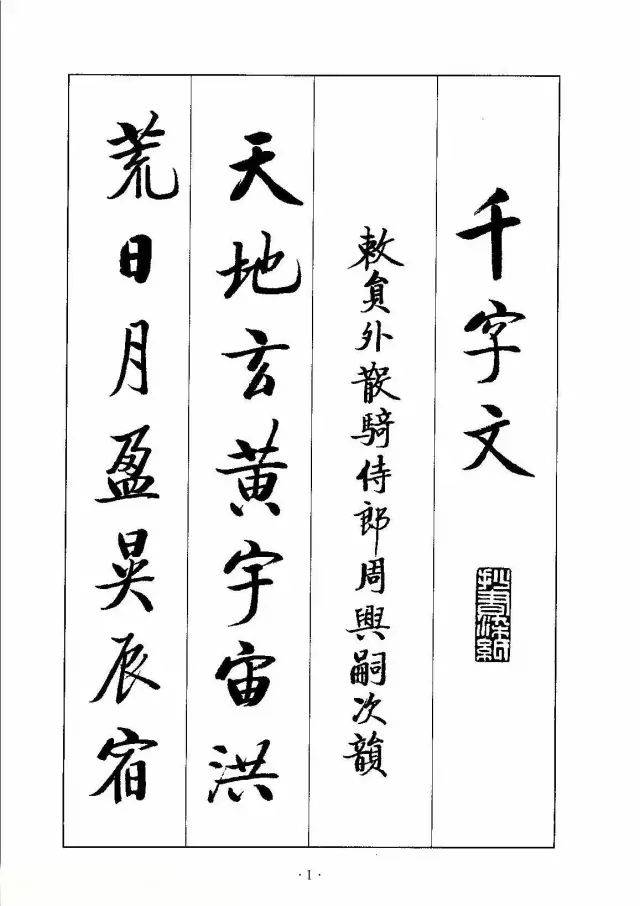 千字文
敕員外散騎侍郎周興嗣次韻
天地玄黃宇宙洪
荒日月盈昃辰宿
· 1 ·